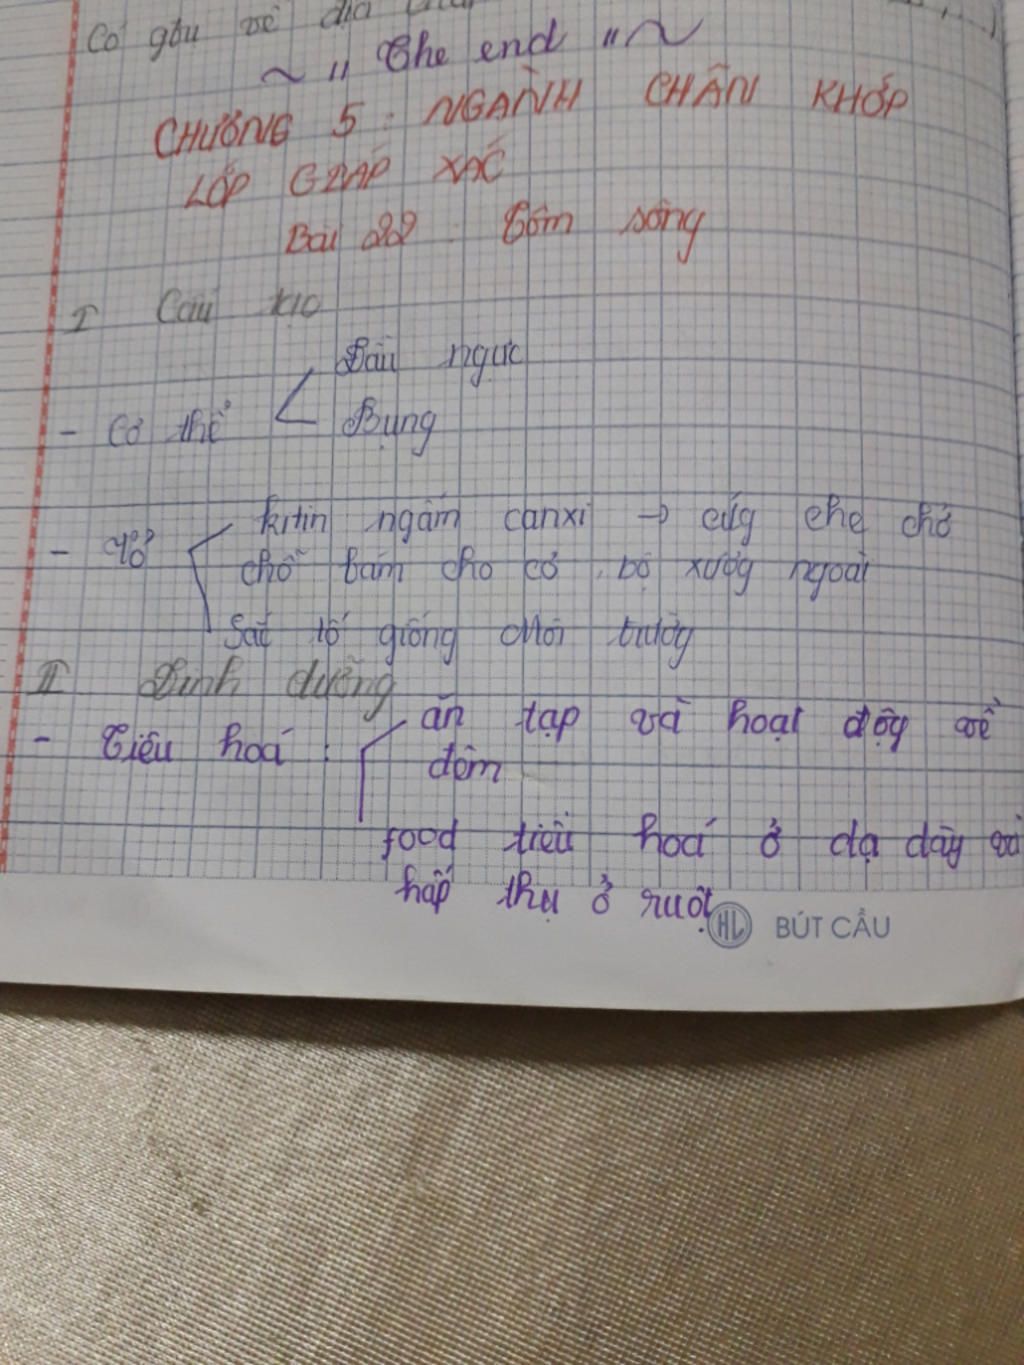 Có gâu về địa
~ " The end " ~
CHƯƠNG 5: NGÀNH CHÂN KHỚP
LỚP GIÁP XÁC
Bài 22: Tôm sông
I Cấu tạo
Đầu ngực
- Cơ thể
Bụng
kitin ngấm canxi → cứg che chở
- Vỏ
chỗ bám cho cơ, bộ xươg ngoài
Sắc tố giống Môi trườg
II Dinh dưỡng
ăn tạp và hoạt độg về
- Tiêu hoá:
đêm
food tiêu hoá ở dạ dày và
hấp thụ ở ruột.
HL BÚT CẦU